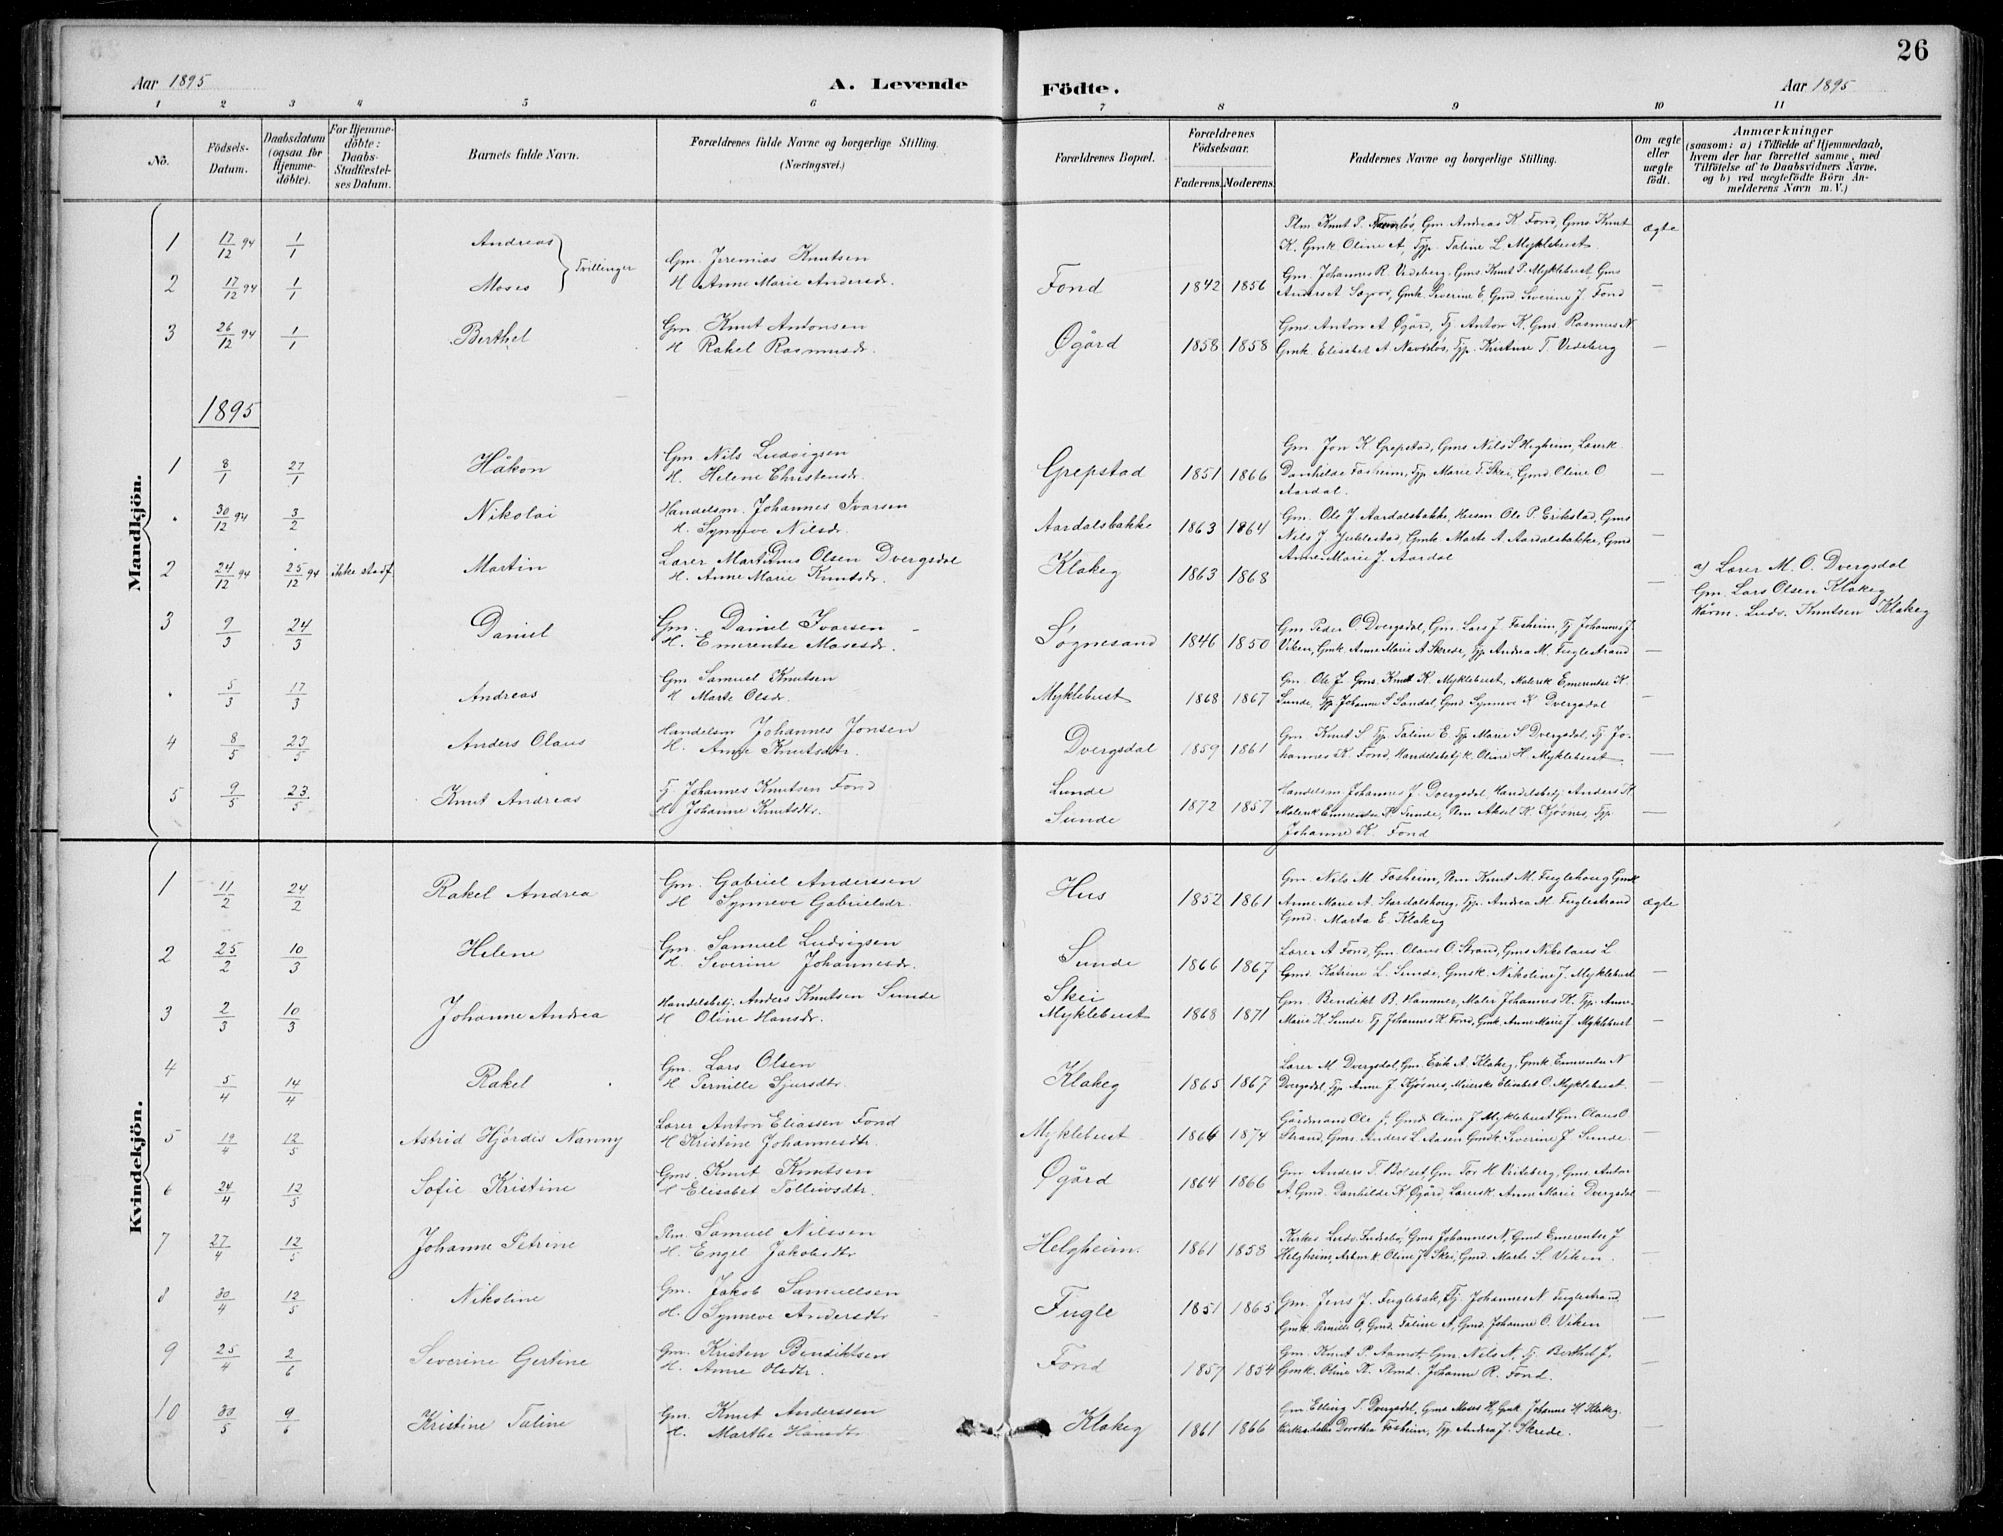 26
Aar 1895 A. Levende Födte. Aar 1895
1 2 3 4 5 6 7 8 9 10 11
No. Födsels-Datum. Daabsdatum (ogsaa for Hjemme-döbte). For Hjemme-döbte: Daabs-Stadfæstel-ses Datum. Barnets fulde Navn. Forældrenes fulde Navne og borgerlige Stilling. (Næringsvei.) Forældrenes Bopæl. Forældrenes Födselsaar. Faderens. Moderens. Faddernes Navne og borgerlige Stilling. Om ægte eller uægte födt. Anmærkninger (saasom: a) i Tilfælde af Hjemmedaab, hvem der har forrettet samme, med Tilföielse af to Daabsvidners Navne, og b) ved uægtefödte Börn An-melderens Navn m. V.)
Mandkjön.
1 17/12 94 1/1 Andreas } Tvillinger Gm. Jeremias Knutsen ægte
Plm Knut P. Gm Andreas K. Fond, Gms Knut
K. Gmk Oline A, Tjp. Taline L. Myklebust.
2 17/12 94 1/1 Moses H Anne Marie Andersdr. Fond 1842 1856 —
Gm. Johannes R. Vedeberg. Gms Knut P. Myklebust, Gms
Anders A Gmk. Severine E, Gmd Severine J. Fond
3 26/12 94 1/1 Berthel Gm Knut Antonsen
H. Rakel Rasmusdr. Øgård 1858 1858 —
Gms Anton A Øgård, Tj Anton K, Gms. Rasmus N.
Gmk. Elisabet A Tjp. Kristine T. Vedeberg
1895
1 8/1 27/1 Håkon Gm Nils Ludvigsen
H. Helene Christensdr. Grepstad 1851 1866 —
Gm Jon K Grepstad, Gms Nils S Hegheim, Lærerk
Danhilde Fosheim, Tjp Marie T. Skei, Gmd Oline O
Aardal.
. 30/12 94 3/2 Nikolai Handelsm. Johannes Ivarsen
H. Synneve Nilsdr. Aardalsbakke 1863 1864 —
Gm. Ole J. Aardalsbakke, Husm Ole P. Erikstad, Gms
Nils J Gmk Marte A. Aardalsbakke, Gmd
Anne Marie J. Aardal
2 24/12 94 25/12 94 ikke stadf. Martin Lærer Martinus Olsen Dvergsdal
H. Anne Marie Knutsdr. Klakeg 1863 1868 —
a) Lærer M. O. Dvergsdal
Gm. Lars Olsen Klakeg
Ludv. Knutsen Klakeg
3 9/3 24/3 Daniel Gm. Daniel Ivarsen
H. Emerentse Mosesdr. Søgnesand 1846 1850 —
Gm Peder O. Dvergsdal, Gm. Lars J. Fosheim, Tj Johannes J.
Viken, Gmk. Anne Marie A Skrede, Tjp Andrea M. Fuglestrand
. 5/3 17/3 Andreas Gm. Samuel Knutsen
H Marte Olsdr. Myklebust 1868 1867 —
Gm. Ole J Gms. Knut K. Myklebust, Malersk Emerentse K.
Sunde, Tjp Johanne S Sandal, Gmd Synneve K Dvergsdal
4 8/5 23/5 Anders Olaus Handelsm Johannes Jonsen
H. Anne Knutsdtr. Dvergsdal 1859 1861 —
Gm. Knut S. Tjp. Taline E. Tjp Marie S Dvergsdal, Tj Jo-
hannes K. Fond, Handelsbetj k. Oline H. Myklebust.
5 9/5 23/5 Knut Andreas Tj Johannes Knutsen Fond
H. Johanne Knutsdtr. Lunde
Sunde 1872 1857 —
Handelsm Johannes J. Dvergsdal, Handelsbetj. Anders K
Malersk Emerentse K Sunde, Pem Aksel K Kjøsnes, Tjp
Johanne K. Fond
Kvindekjön.
1 11/2 24/2 Rakel Andrea Gm. Gabriel Anderssen
H Synneve Gabrielsdr. Hus 1852 1861 ægte
Gm. Nils M Fosheim, Pem Knut M. Fuglehoug Gmk
Anne Marie A. Stardalshoug, Tjp. Andrea M. Fuglestrand
Gmd. Marta E. Klakeg
2 25/2 10/3 Helene Gm. Samuel Ludvigsen
H. Severine Johannesdr. Sunde 1866 1867 —
Lærer A Fond, Gm. Olaus O. Strand, Gms Nikolaus L
Gmd. Katrine L. Sunde, Gmsk. Nikoline J. Myklebust
3 2/3 10/3 Johanne Andrea Handelsbetj. Anders Knutsen Sunde
H Oline Hansdr. Skei
Myklebust 1868 1871 —
Gm. Bendikt B. Hammer, Maler Johannes K. Tjp. Anne-
Marie K. Sunde Tj Johannes K. Fond, Gmk. Anne Marie J. Myklebust
4 5/4 14/4 Rakel Gm. Lars Olsen
H Pernille Sjursdtr. Klakeg 1865 1867 —
Lærer M Dvergsdal, Gm. Erik A. Klakeg, Gmk. Emerentse N
Dvergsdal, Tjp. Anne J. Kjøsnes, Meierske Elisabet O. Myklebust.
5 19/4 12/5 Astrid Hjørdis Nanny Lærer Anton Eliassen Fond
H Kristine Johannesdtr. Myklebust 1866 1874 —
Gårdmans Ole J, Gmd Oline J Myklebust Gm. Olaus O
Strand, Gms. Anders L Aasen Gmdk Severine J. Sunde.
6 24/4 12/5 Sofie Kristine Gms. Knut Knutsen
H Elisabet Tollivsdtr. Øgård 1864 1866 —
Gm Anders T. Bolset, Gm Tor H. Viteberg, Gms. Anton
A, Gmd. Danhilde K Øgård, Lærersk. Anne Marie Dvergsdal
7 27/4 12/5 Johanne Petrine Plm. Samuel Nilssen
H. Engel Jakobsdtr Helgheim. 1861 1858 —
Kirkes Ludv. Gms Johannes N, Gmd Emerentse J
Helgheim, Oline J. Skei, Gmd. Marte S. Viken.
8 30/4 12/5 Nikoline Gm. Jakob Samuelsen
H. Synneve Andersdtr Fugle 1851 1865 —
Gm. Jens J. Fuglebak, Tj. Johannes N Fuglestrand
Gmk. Pernille O, Gmd. Taline A, Gmd. Johanne O. Viken
9 25/4 2/6 Severine Gertine Gm. Kristen Bendiktsen
H. Anne Olsdtr. Fond 1857 1854 —
Gm. Knut P. Aamot, Gm. Nils N, Tj. Berthel J.
Gmk. Oline K. Plmd. Johanne R. Fond.
10 30/5 9/6 Kristine Taline Gm. Knut Anderssen
H. Marthe Hansdtr Klakeg 1861 1866 —
Gm. Elling T. Dvergsdal, Gms Moses H, Gmk Johanne H. Klakeg.
Dorothea Fosheim, Tjp. Andrea J. Skrede.